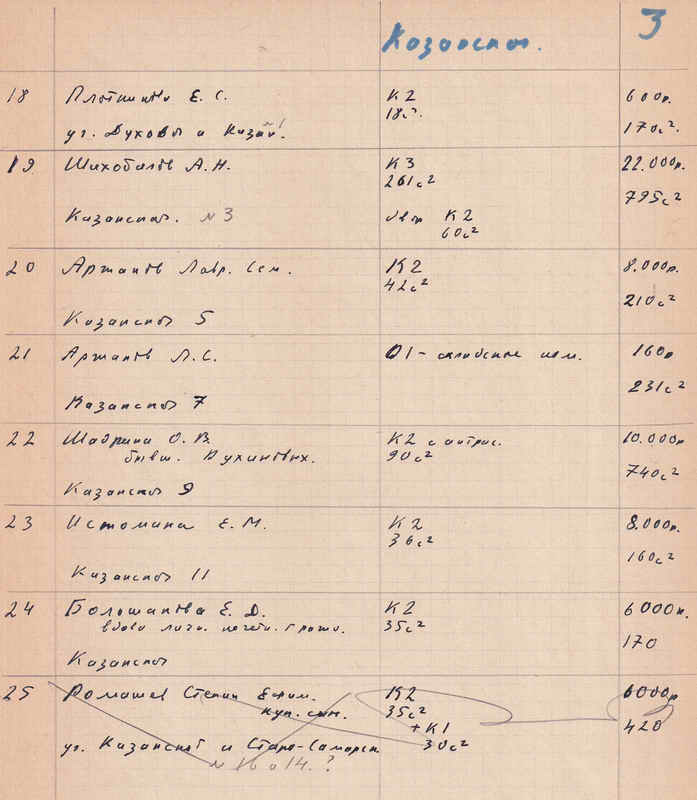 Казанская. 3
18 Плотникова Е. С. К2 600р.
18с².
уг. Духовы и Казан! 170с².
19 Шихобалов А. Н. К3 22.000р.
261с²
795с²
Казанская. №3 К2
60с²
20 Аржанов Лавр. Сем. К2 8.000р.
42с²
210с²
Казанская 5
21 Аржанов Л. С. 01 - складское пом. 160р
231с²
Казанская 7
22 Шадрина О. В. К2 с антрес. 10.000р
бывш. Духиновых. 90с²
740с²
Казанская 9
23 Истомина Е. М. К2 8.000р.
36с²
160с²
Казанская 11
24 Большакова Е. Д. К2 6000р.
вдова личн. почетн. гражд. 35с²
170
Казанская
25 Ромашев Степан Ефим. К2 6000р
куп. сын. 35с²
+ К1 420
уг. Казанской и Старо-Самарск 30с²
№ 16 о 14. ?